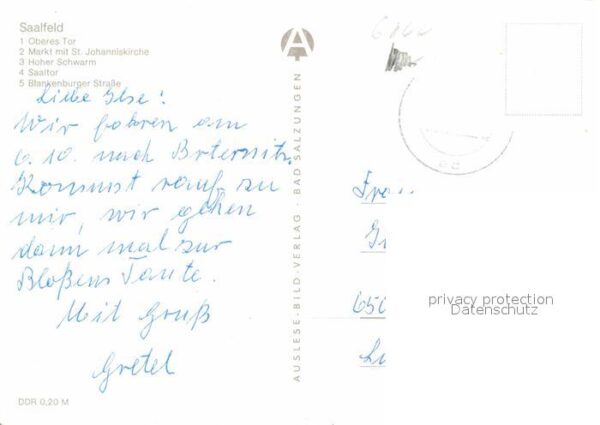 Saalfeld
1 Oberes Tor
2 Markt mit St. Johanniskirche
3 Hoher Schwarm
4 Saaltor
5 Blankenburger Straße
Liebe Ilse!
Wir fahren am
6. 10. nach Breternitz.
Kommst rauf zu
mir, wir gehen
dann mal zur
Bloßens Tante.
Mit Gruß
Gretel
DDR 0,20 M
AUSLESE-BILD-VERLAG · BAD SALZUNGEN
A
Fra
650
privacy protection
Datenschutz